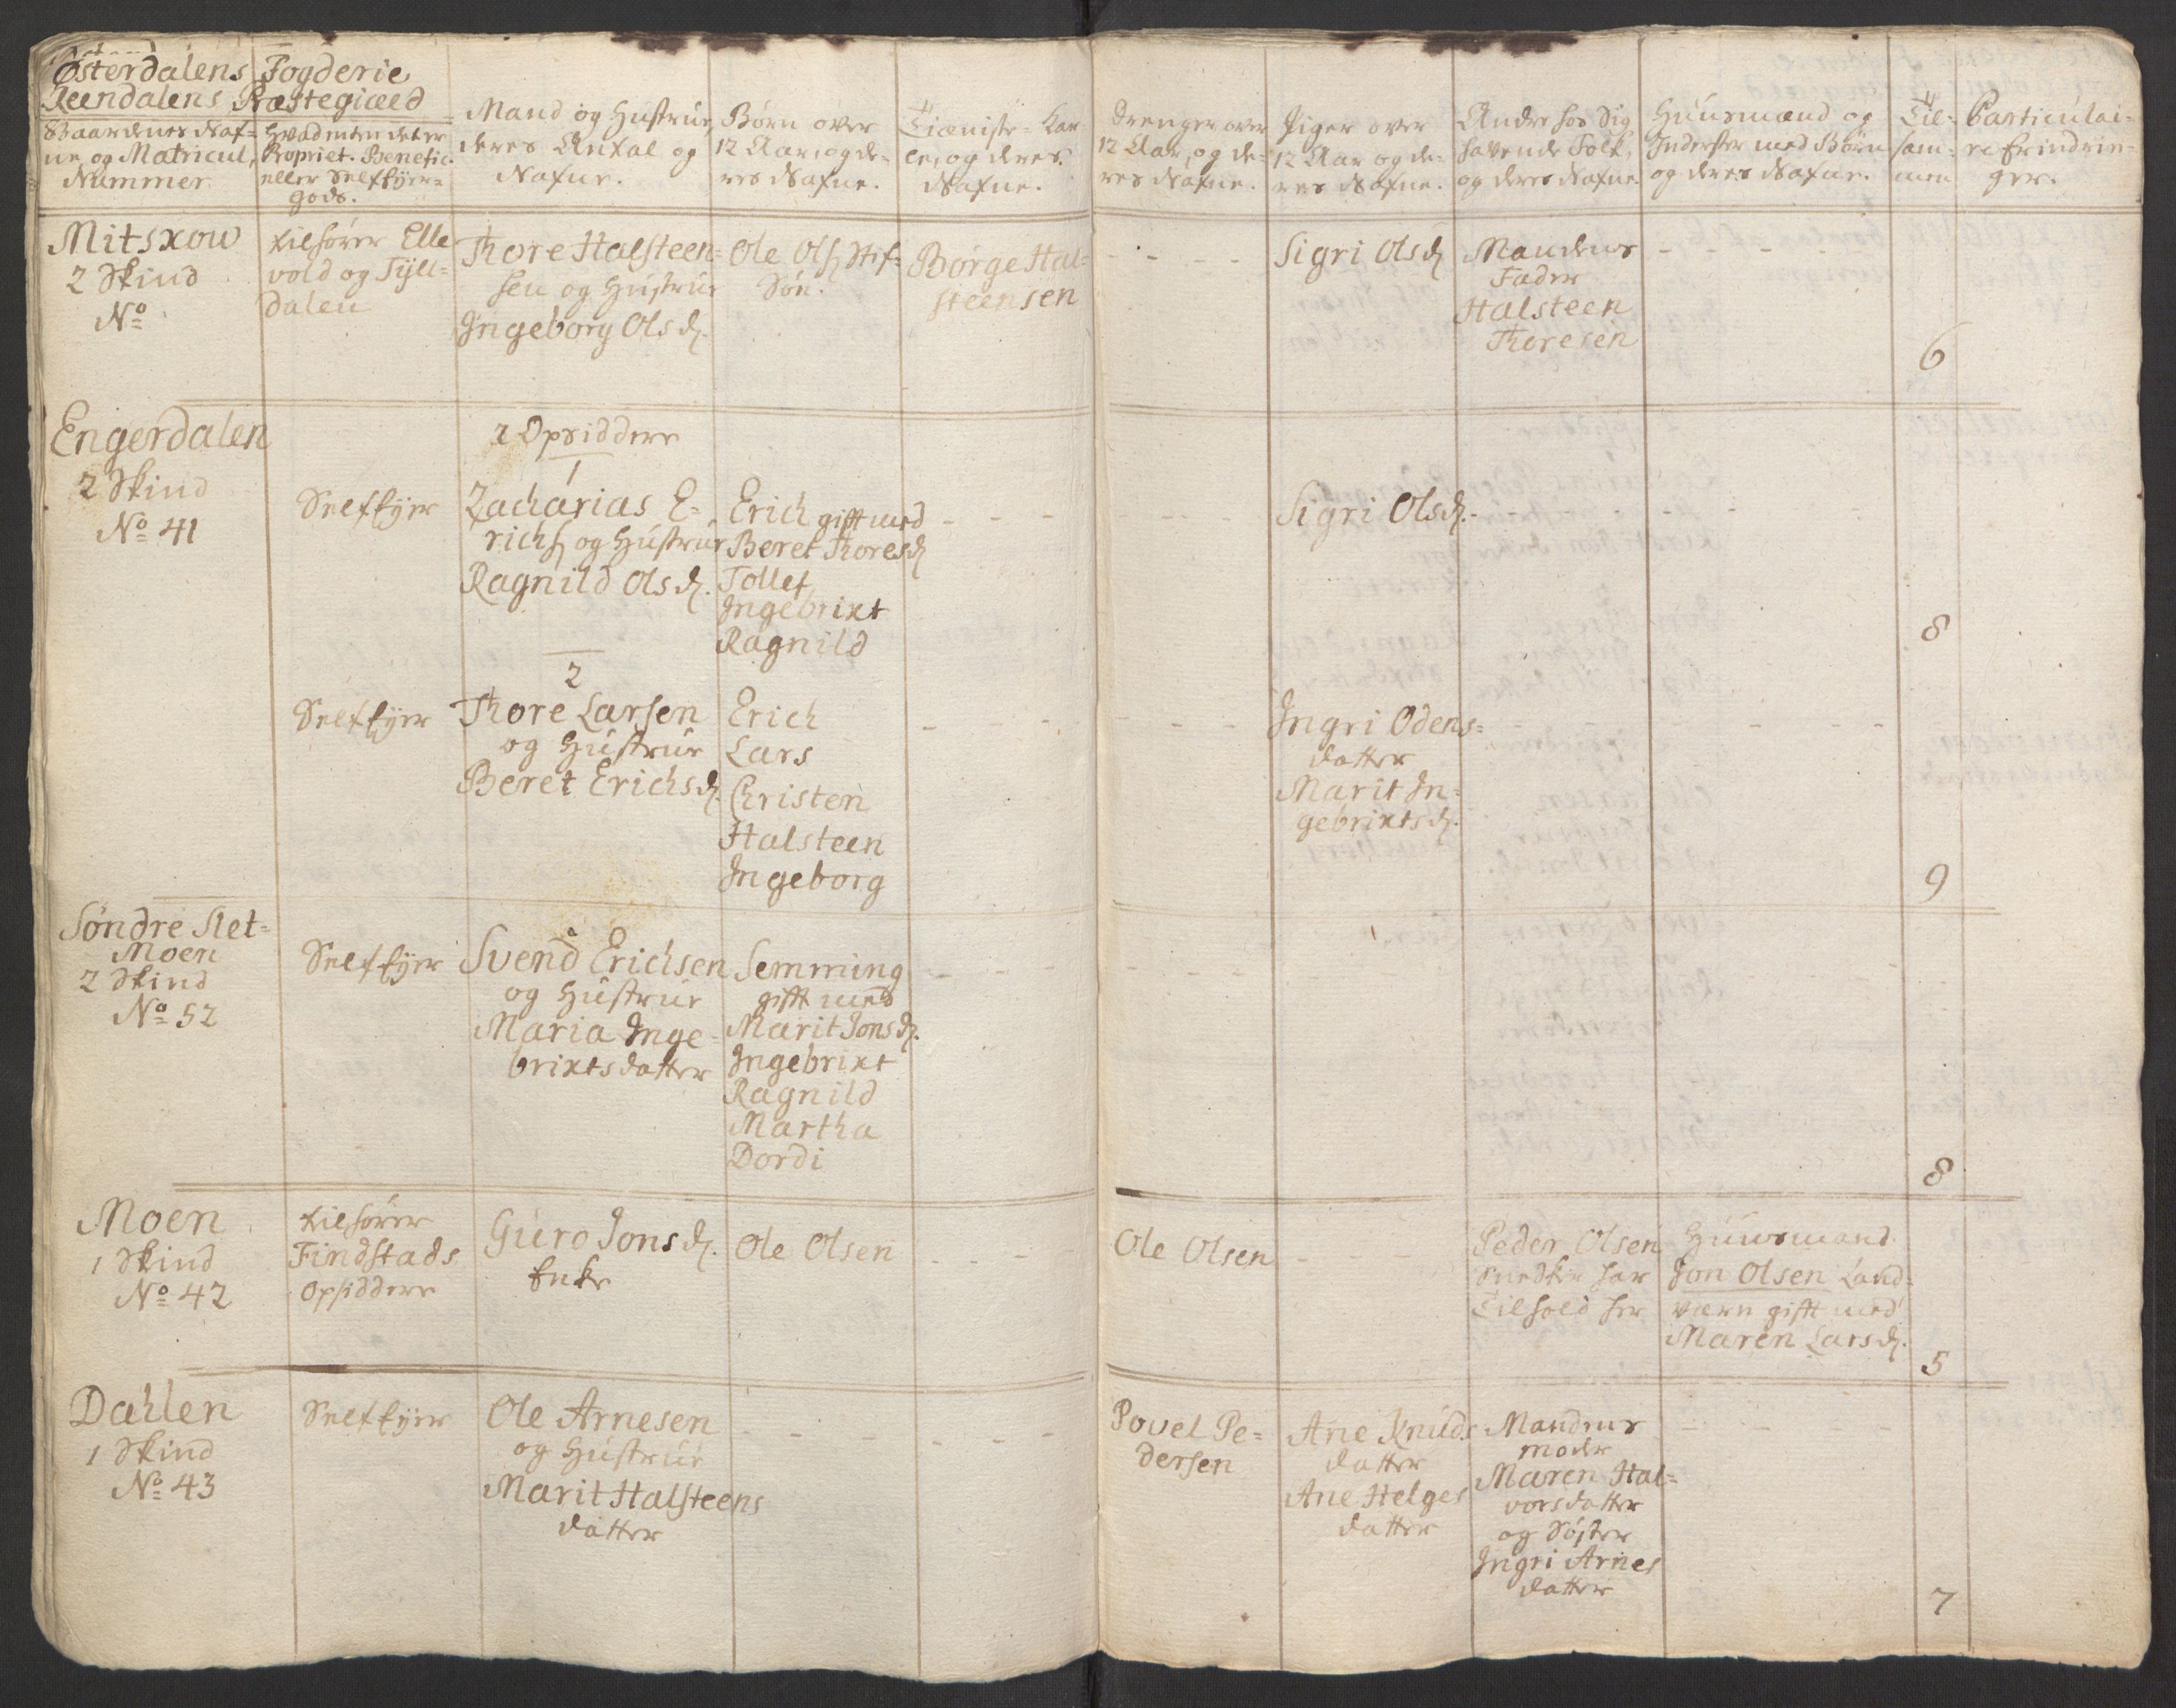 Østerdalens Fogderie
Reendalens Præstegiæld
Gaardenes Naf=
ne, og Matricul,
Nummer.
Hvad enten det er
Propriet. Benefic.
eller Selfeyer=
gods.
Mand og Hustrue,
deres Antal og
Nafne.
Børn over
12 Aar, og de=
res Nafne.
Tieniste=Kar
le, og deres
Nafne.
Drenger over
12 Aar, og de=
res Nafne.
Piger over
12 Aar og de=
res Nafne.
Andre hos sig
havende Folk,
og deres Nafne.
Huusmænd og
Inderster med Børn
og deres Nafne.
Til=
sam=
men
Particulai=
re Erindrin=
ger.
Mitskow
2 Skind
No
tilhører Elle
vold og Tyll=
dalen
Thore Halsteen=
sen og Hustrue
Ingeborg Olsd.
Ole Ols. Stif=
Søn.
Børge Hal=
steensen
Sigri Olsd
Mandens
Fader
Halsteen
Thoresen
6
Engerdalen
2 Skind
No 41
2 Opsiddere
1
Selfeyer
Zacharias E=
richs. og Hustrue
Ragnild Olsd.
Erich gift med
Beret Thoresd
Tollef
Ingebrikt
Ragnild
Sigri Olsd.
8
2
Selfeyer
Thore Larsen
og Hustrue
Beret Erichsd.
Erich
Lars
Christen
Halsteen
Ingeborg
Ingri Odens=
datter
Marit In=
gebriktsd.
9
Søndre Slet=
Moen
2 Skind
No 52
Selfeyer
Svend Erichsen
og Hustrue
Maria Inge=
briktsdatter
Semming
gift med
Marit Jonsd.
Ingebrikt
Ragnild
Martha
Dordi
8
Moen
1 Skind
No 42
tilhører
Findstads
Opsiddere
Guro Jonsd.
Enke
Ole Olsen
Ole Olsen
Peder Olsen
Snedker har
Tilhold her
Huusmand
Jon Olsen Land=
værn gift med
Maren Larsd.
5
Dahlen
1 Skind
No 43
Selfeyer
Ole Arnesen
og Hustrue
Marit Halsteens
datter
Povel Pe=
dersen
Ane Knuds
datter
Ane Helges
datter
Mandens
moder
Maren Hal=
vorsdatter
og Søster
Ingri Arnes
datter
7